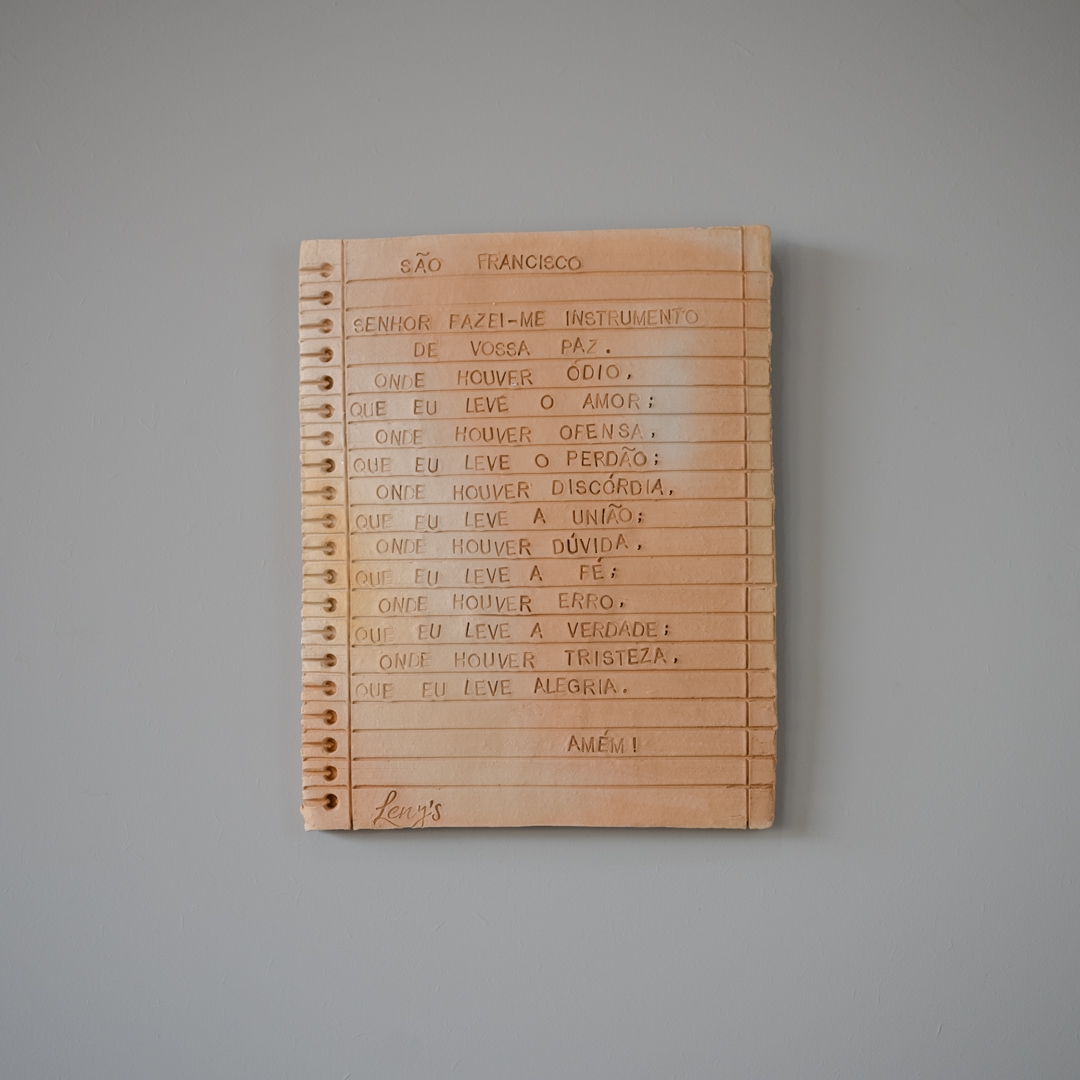 SÃO FRANCISCO
SENHOR FAZEI-ME INSTRUMENTO
DE VOSSA PAZ.
ONDE HOUVER ÓDIO,
QUE EU LEVE O AMOR;
ONDE HOUVER OFENSA,
QUE EU LEVE O PERDÃO;
ONDE HOUVER DISCÓRDIA,
QUE EU LEVE A UNIÃO;
ONDE HOUVER DÚVIDA,
QUE EU LEVE A FÉ;
ONDE HOUVER ERRO,
QUE EU LEVE A VERDADE;
ONDE HOUVER TRISTEZA,
QUE EU LEVE ALEGRIA.
AMÉM!
Leny's